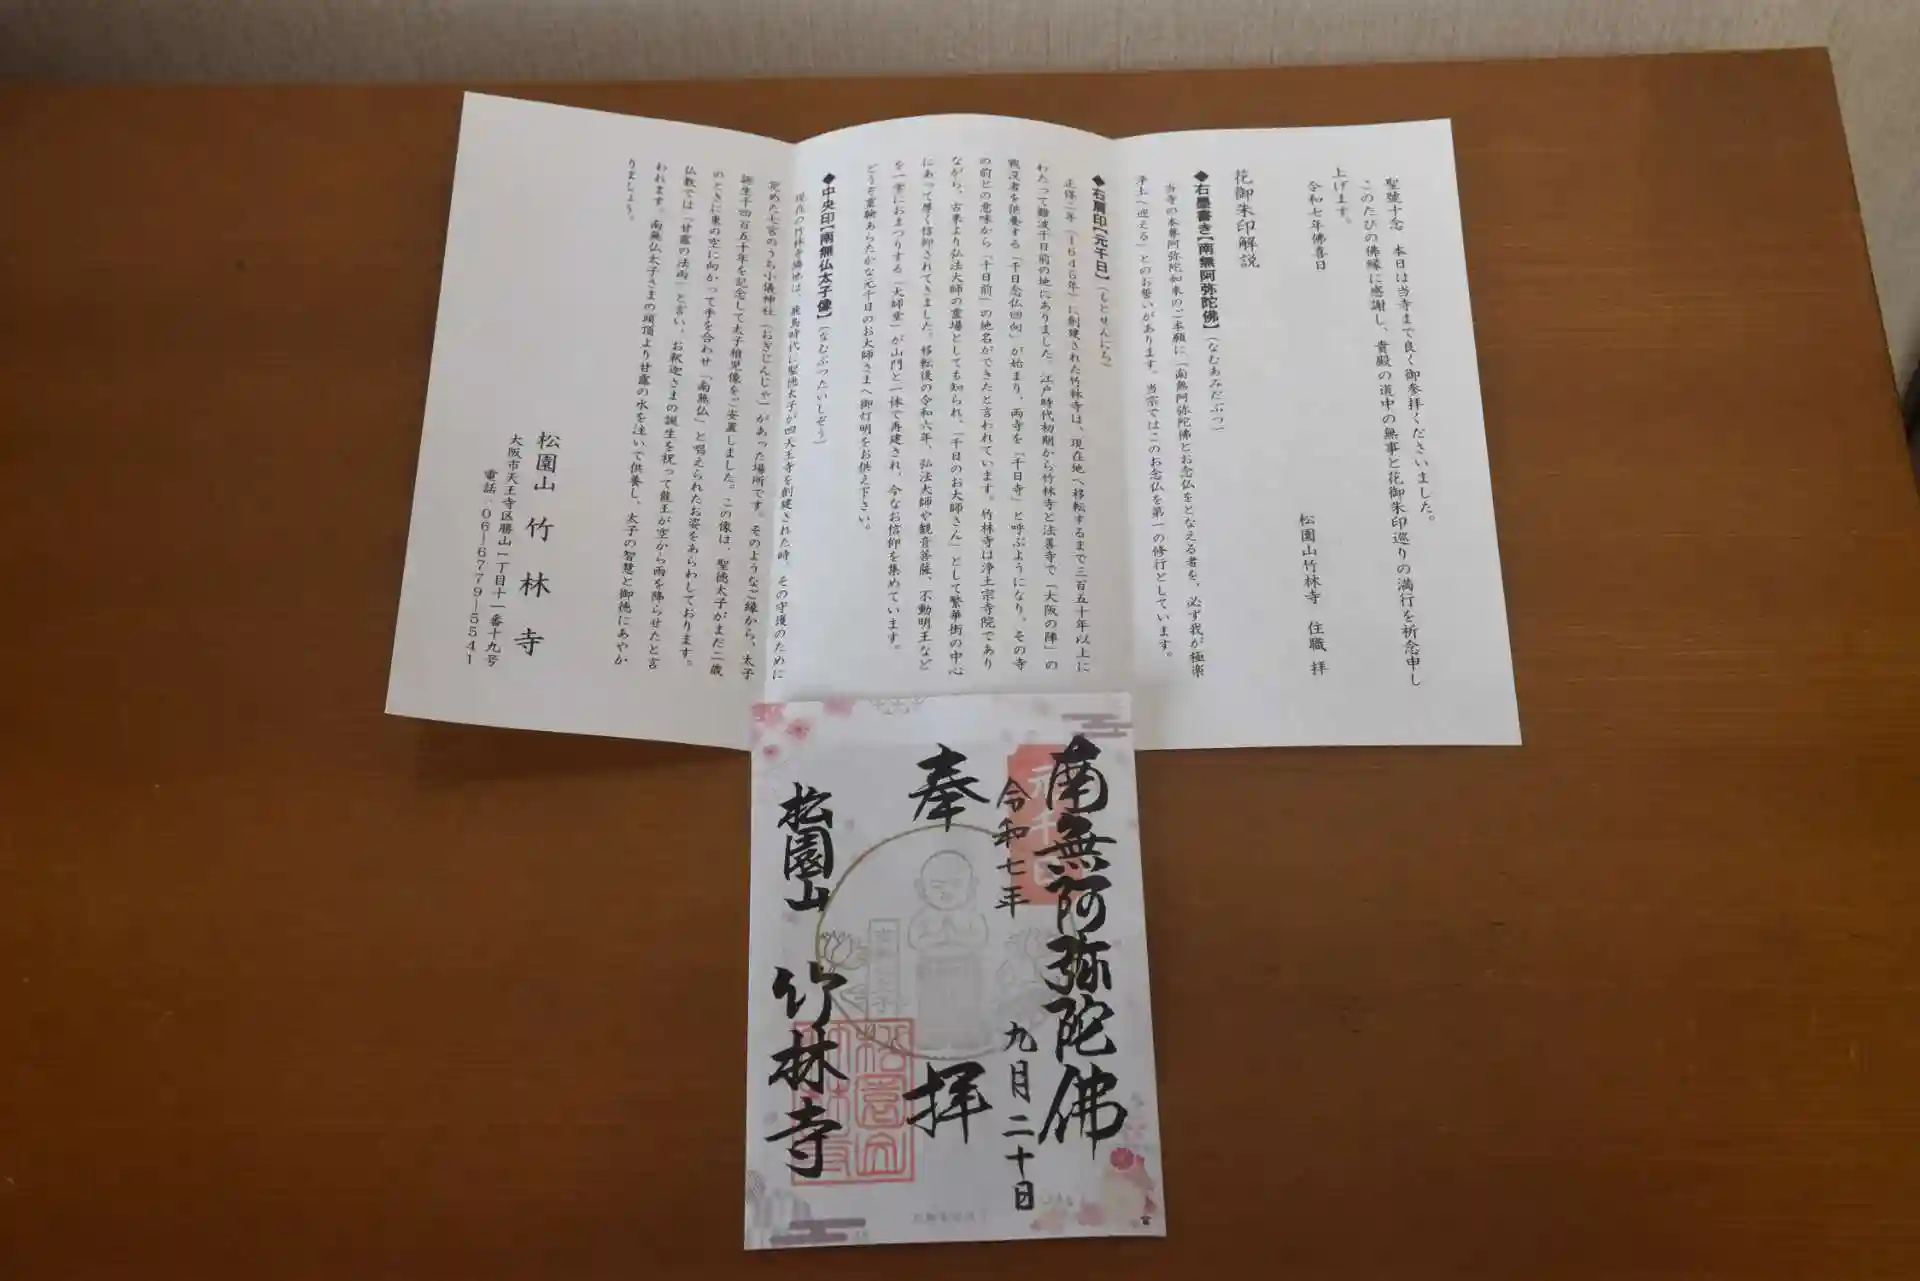 聖號十念　本日は当寺まで良く御参拝くださいました。
このたびの佛縁に感謝し、貴殿の道中の無事と花御朱印巡りの満行を祈念申し
上げます。
令和七年佛喜日
松園山竹林寺　住職　拝
花御朱印解説
◆右墨書き【南無阿弥陀佛】（なむあみだぶつ）
当寺の本尊阿弥陀如来のご本願に「南無阿弥陀佛とお念仏をとなえる者を、必ず我が極楽
浄土へ迎える」とのお誓いがあります。当宗ではこのお念仏を第一の修行としています。
◆右肩印【元千日】（もとせんにち）
正保二年（1645年）に創建された竹林寺は、現在地へ移転するまで三百五十年以上に
わたって難波千日前の地にありました。江戸時代初期から竹林寺と法善寺で「大阪の陣」の
戦没者を供養する「千日念仏回向」が始まり、両寺を「千日寺」と呼ぶようになり、その寺
の前との意味から「千日前」の地名ができたと言われています。竹林寺は浄土宗寺院であり
ながら、古来より弘法大師の霊場としても知られ、「千日のお大師さん」として繁華街の中心
にあって厚く信仰されてきました。移転後の令和六年、弘法大師や観音菩薩、不動明王など
を一堂におまつりする「大師堂」が山門と一体で再建され、今なお信仰を集めています。
どうぞ霊験あらたかな元千日のお大師さまへ御灯明をお供え下さい。
◆中央印【南無仏太子像】（なむぶつたいしぞう）
現在の竹林寺隣地は、飛鳥時代に聖徳太子が四天王寺を創建された時、その守護のために
定めた七宮のうち小儀神社（おぎじんじゃ）があった場所です。そのようなご縁から、太子
誕生千四百五十年を記念して太子稚児像をご安置しました。この像は、聖徳太子がまだ二歳
のときに東の空に向かって手を合わせ「南無仏」と唱えられたお姿をあらわしております。
仏教では「甘露の法雨」と言い、お釈迦さまの誕生を祝って龍王が空から雨を降らせたと言
われます。南無仏太子さまの頭頂より甘露の水を注いで供養し、太子の智慧と御徳にあやか
りましょう。
松園山　竹林寺
大阪市天王寺区勝山一丁目十一番十九号
電話　06-6779-5541
南無阿弥陀佛
元千日
令和七年　九月二十日
奉拝
松園山　竹林寺